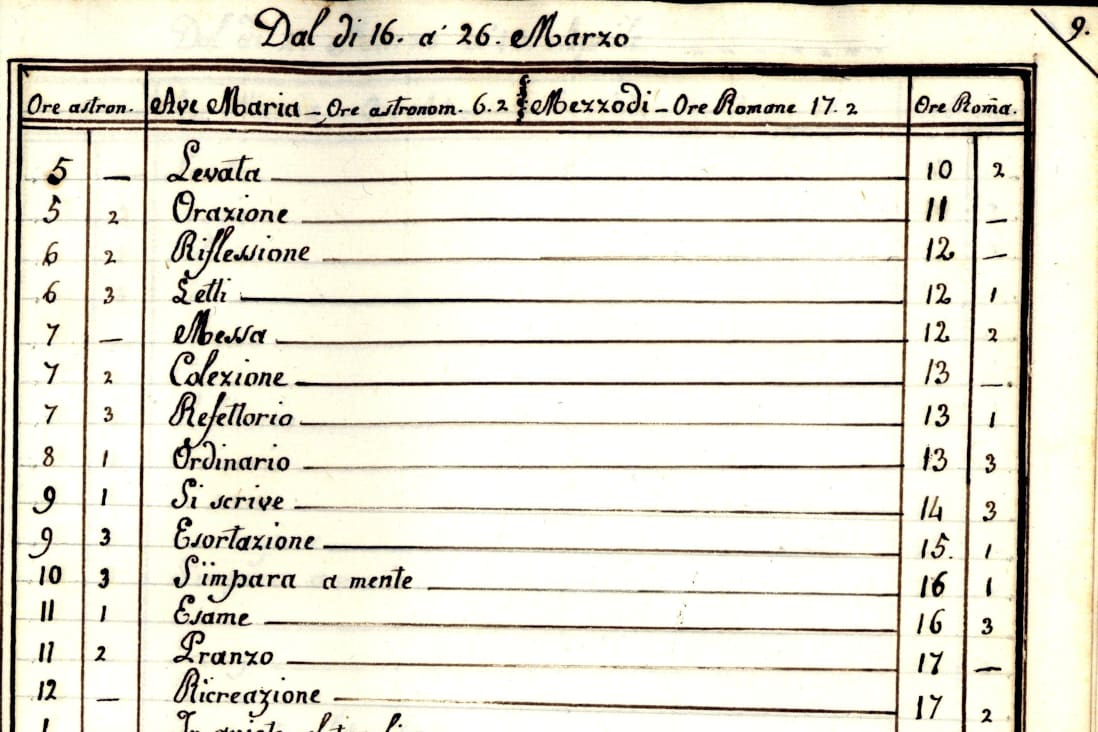 9.
Dal di 16. a' 26. Marzo
Ore astron. Ave Maria - Ore astronom. 6. 2 Mezzodi - Ore Romane 17. 2 Ore Roma.
5 — Levata 10 2
5 2 Orazione 11 —
6 2 Riflessione 12 —
6 3 Letti 12 1
7 — Messa 12 2
7 2 Colezione 13 —.
7 3 Refettorio 13 1
8 1 Ordinario 13 3
9 1 Si scrive 14 3
9 3 Esortazione 15. 1
10 3 S'impara a mente 16 1
11 1 Esame 16 3
11 2 Pranzo 17 —
12 — Ricreazione 17 2